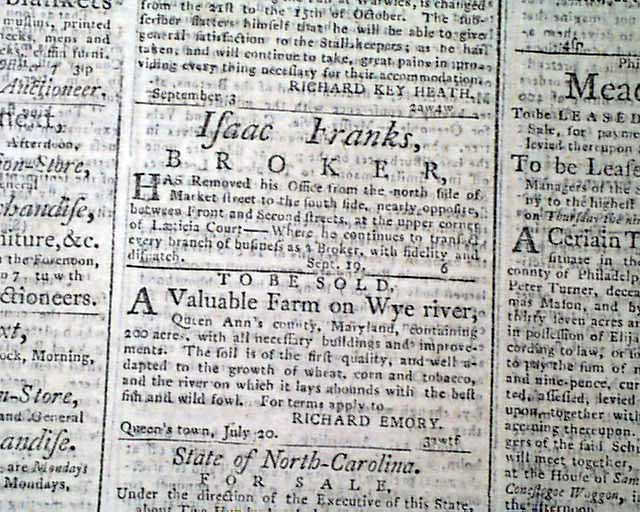 Blankets
muslins, printed
necks, mens and
coffin furni.
3tp
Auctioneer,
Afternoon,
ion-Store,
General
chandise,
niture, &c.
the Forenoon,
7 tuwth
ctioneers.
Morning,
n-Store,
and General
andise.
are Mondays
Mondays,
at Warwick, is changed
from the 21st to the 15th of October. The sub-
scriber flatters himself that he will be able to give
general satisfaction to the Stallskeepers; as he has
taken, and will continue to take, great pains in pro-
viding every thing necessary for their accommodation.
RICHARD KEY HEATH.
September 3 2aw4w
Isaac Franks,
BROKER,
HAS Removed his Office from the north side of
Market street to the south side, nearly opposite,
between Front and Second streets, at the upper corner
of Lætitia Court—Where he continues to transact
every branch of business as a Broker, with fidelity and
dispatch. Sept. 19. 6
TO BE SOLD,
A Valuable Farm on Wye river,
Queen Ann's county, Maryland, containing
200 acres, with all necessary buildings and improve-
ments. The soil is of the first quality, and well a-
dapted to the growth of wheat, corn and tobacco,
and the river on which it lays abounds with the best
fish and wild fowl. For terms apply to
RICHARD EMORY.
Queen's town, July 20.
State of North-Carolina.
FOR SALE,
Under the direction of the Executive of this State,
about Two
4p
Phi
Mead
To be LEASED
Sale, for payme
levied thereupon
To be Lease
Managers of the
ny, to the highest
on Thursday the
A Certain T
situate in the
county of Philadelp
Peter Turner, dece
mas Mason, and by
thirty seven acres a
in possession of Elija
cording to law, or
to pay the sum of
and nine-pence, cur
ted, assessed, levied
upon, together with
accruing thereupon.
gers of the said Schu
will meet together,
at the House of Sam
Conestogoe Waggon, in
the afternoon